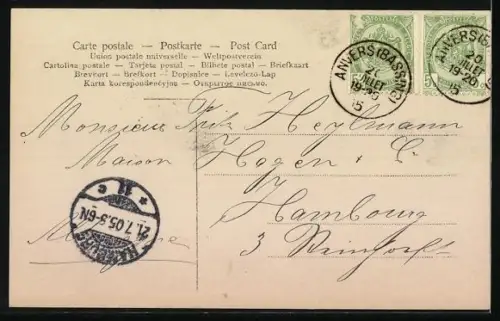 Carte postale — Postkarte — Post Card
Union postale universelle — Weltpostverein
Cartolina postale — Tarjeta postal — Bilhete postal — Briefkaart
Brevkort — Brefkort — Dopisnice — Levelező-Lap
Karta korespondencyjna — Открытое письмо.
ANVERS (BASSINS)
JUILLET
19-20
1905
5
ANVERS (BASSINS)
JUILLET
19-20
5
Monsieur Fritz Heylmann
Maison Hagen & C.
Hambourg
3
HAMBURG
21.7.05.5-6N
* 11 c *